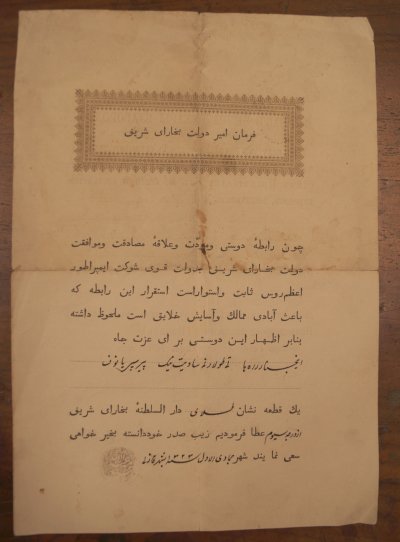 فرمان امیر دولت بخارای شریف
چون رابطهٔ دوستی ومودّت وعلاقهٔ مصادقت وموافقت
دولت بخارای شریف بدولت قوی شوکت ایمپراطور
اعظم روس ثابت واستواراست استقرار این رابطه که
باعث آبادی ممالك وآسایش خلایق است ملحوظ داشته
بنابر اظهار این دوستی برای عزت جاه
یك قطعه نشان دار السلطنهٔ بخارای شریف
عطا فرمودیم زیب صدر خوددانسته بخیر خواهی
سعی نمایند شهر جمادی الاول سنه ۱۳۲۳